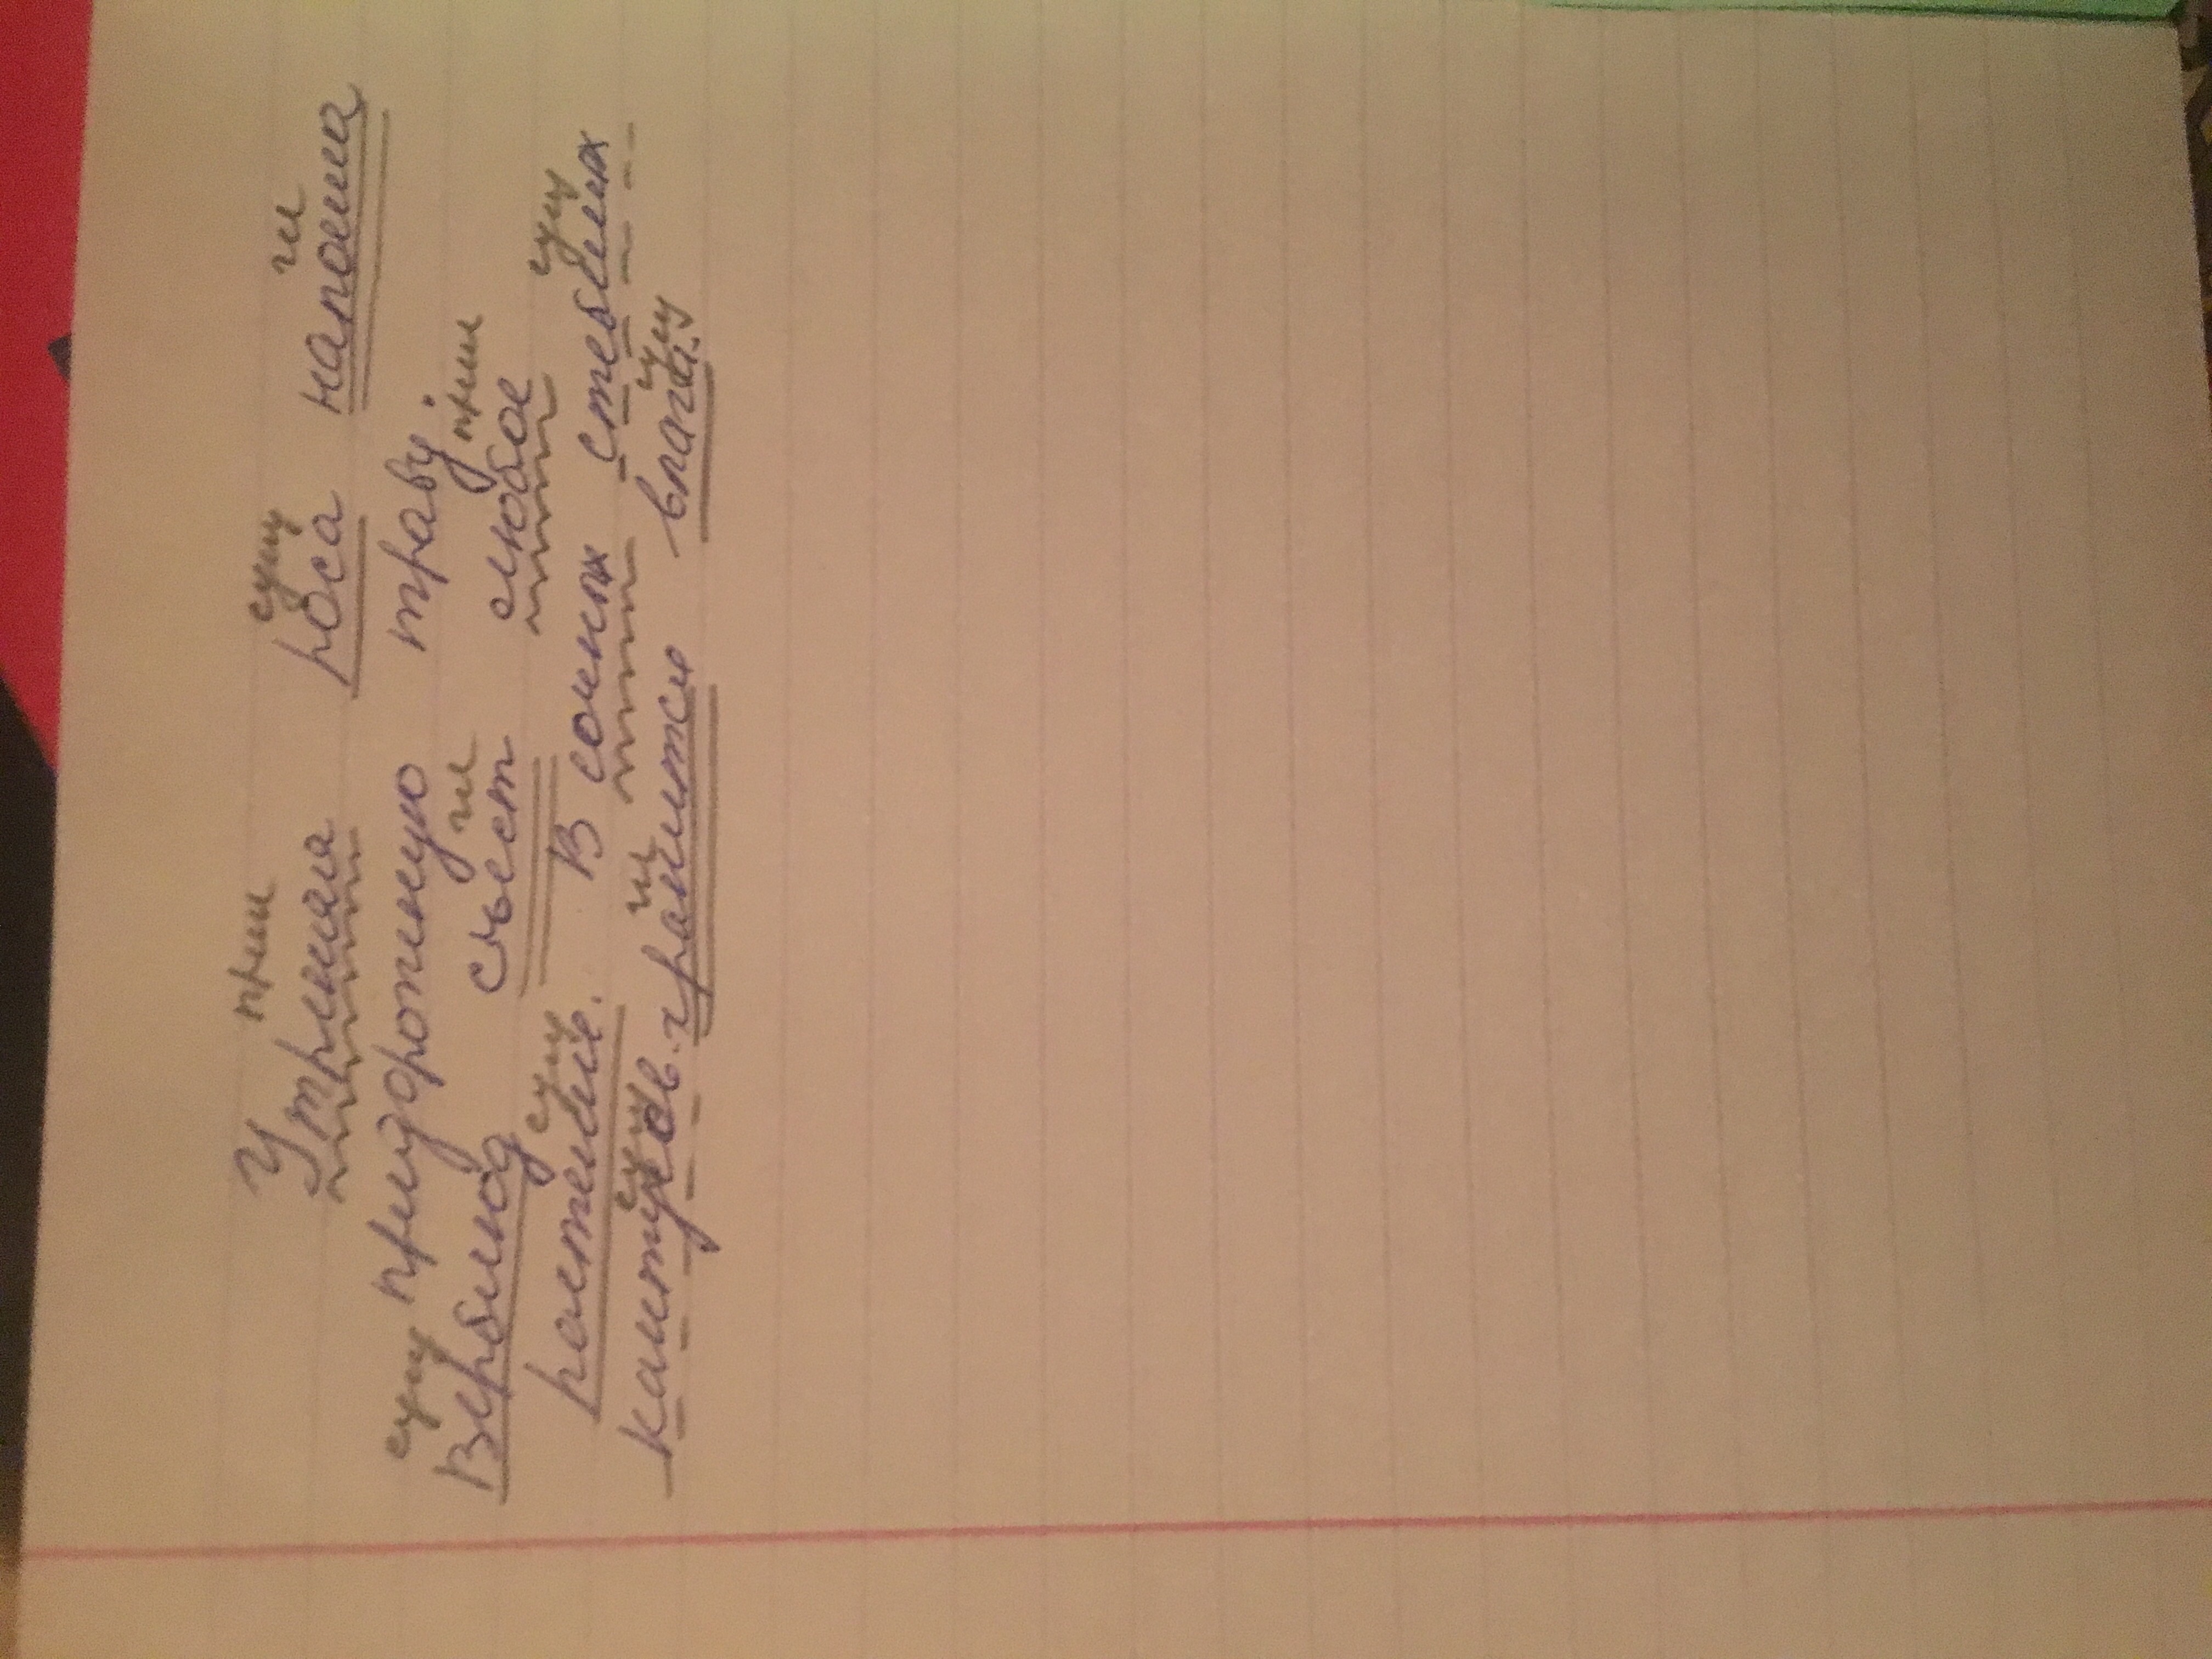 прил сущ гл
Утренняя роса напоила
придорожную траву.
сущ гл прил
Верблюд съест любое
сущ сущ
растение. В сочных стеблях
сущ гл сущ
кактусов хранится влага.